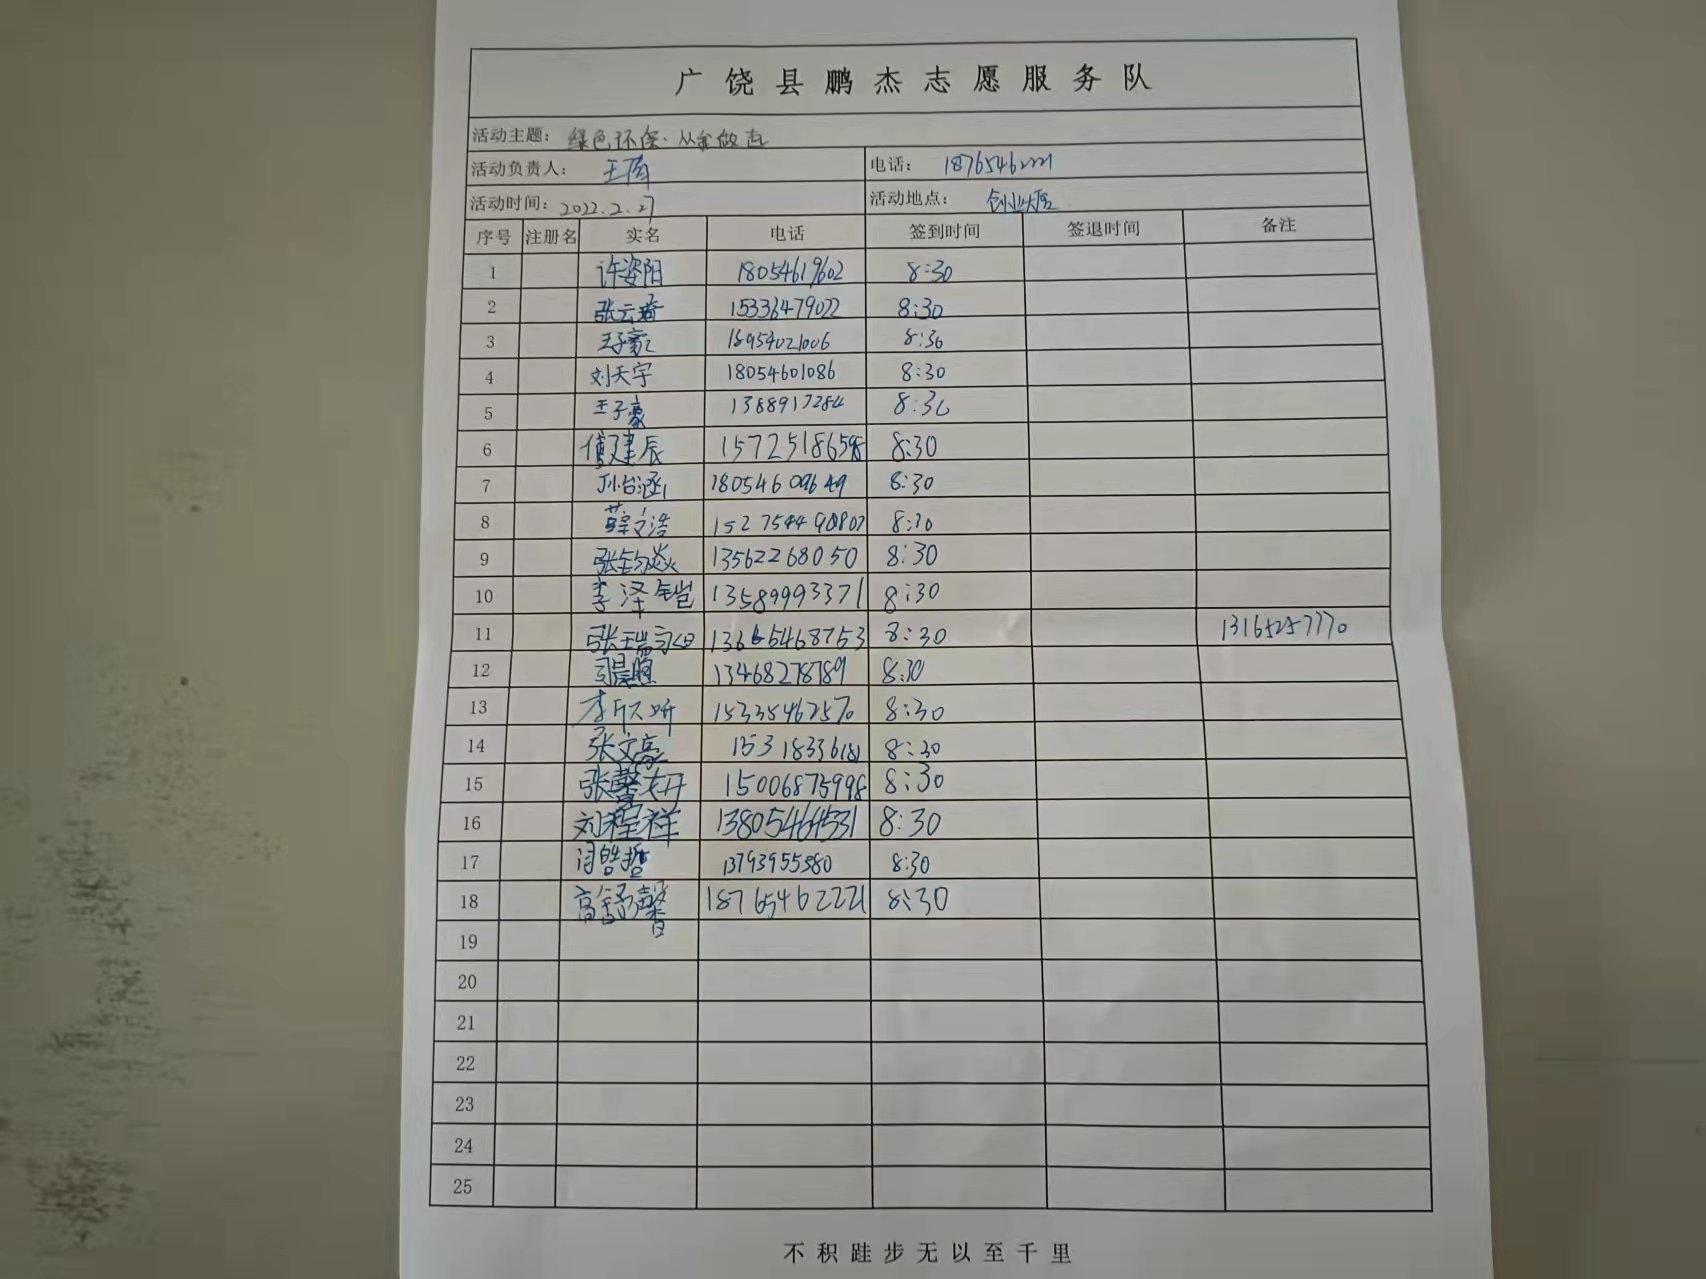 广饶县鹏杰志愿服务队
活动主题：绿色环保·从我做起
活动负责人： 电话：18765462221
活动时间：2022.2.27 活动地点：创业大厦
序号 注册名 实名 电话 签到时间 签退时间 备注
1 许姿阳 18054619602 8:30
2 张云 15336479022 8:30
3 王子豪 18954021006 8:30
4 刘天宇 18054601086 8:30
5 王子豪 1388917284 8:30
6 傅建辰 15725186598 8:30
7 18054609649 8:30
8 薛文浩 8:30
9 张钧焱 13562268050 8:30
10 李泽铠 13589993371 8:30
11 张瑞 13665468753 8:30 13165257770
12 司晨煦 13468278789 8:30
13 李欣听 15335462570 8:30
14 张文豪 15318336181 8:30
15 张馨丹 15006875998 8:30
16 刘程祥 13805464531 8:30
17 闫皓哲 13793955380 8:30
18 高舒馨 18765462221 8:30
19
20
21
22
23
24
25
不积跬步无以至千里